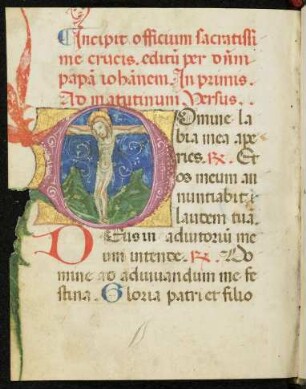 Incipit officium sacratissi
me crucis. editũ per dñm
papã iohãnem. In primis.
Ad matutinum Versus.
Domine la
bia mea ape
ries. ℞. Et
os meum an
nuntiabit
laudem tuã.
Deus in adiutoriũ me
um intende. ℞. Do
mine ad adiuuandum me fe
stina. Gloria patri et filio